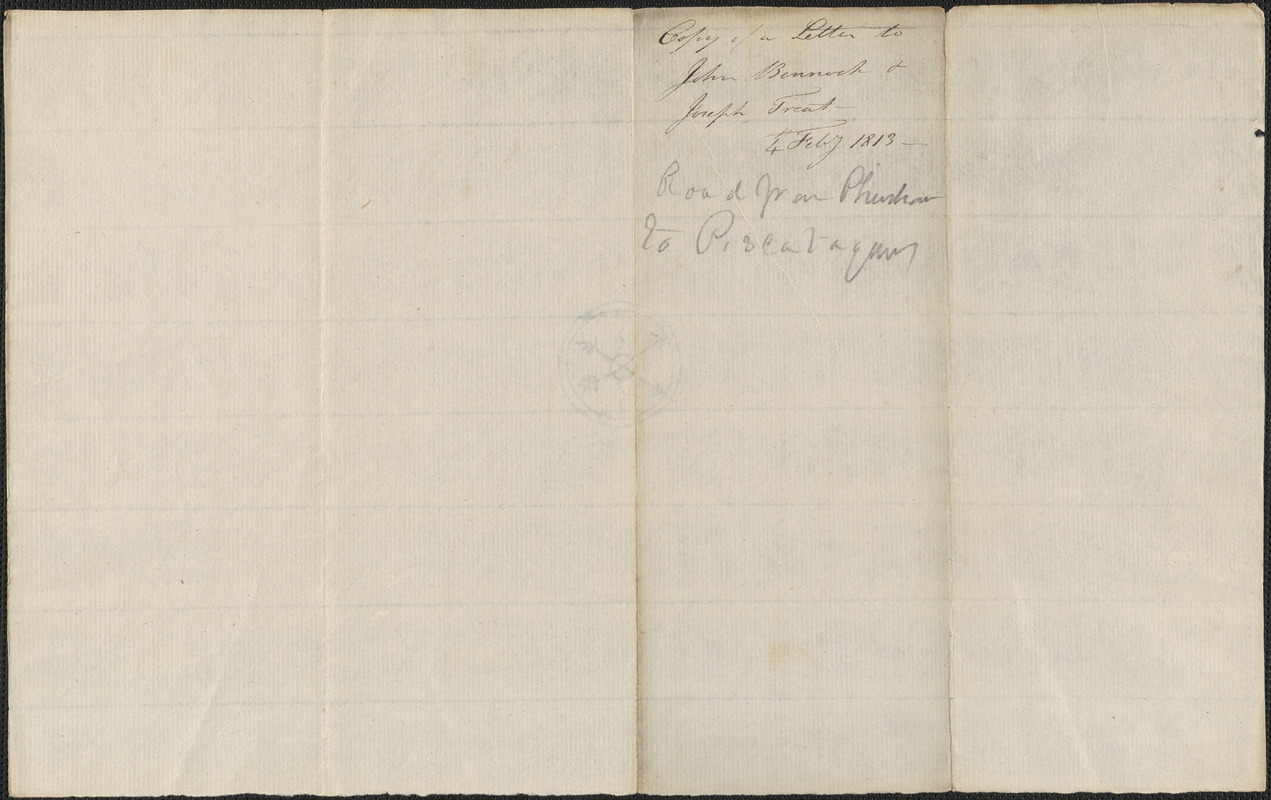 Copy of a Letter to
John Bennoch &
Joseph Treat—
4 Feby 1813—
Road from
to Piscataquis